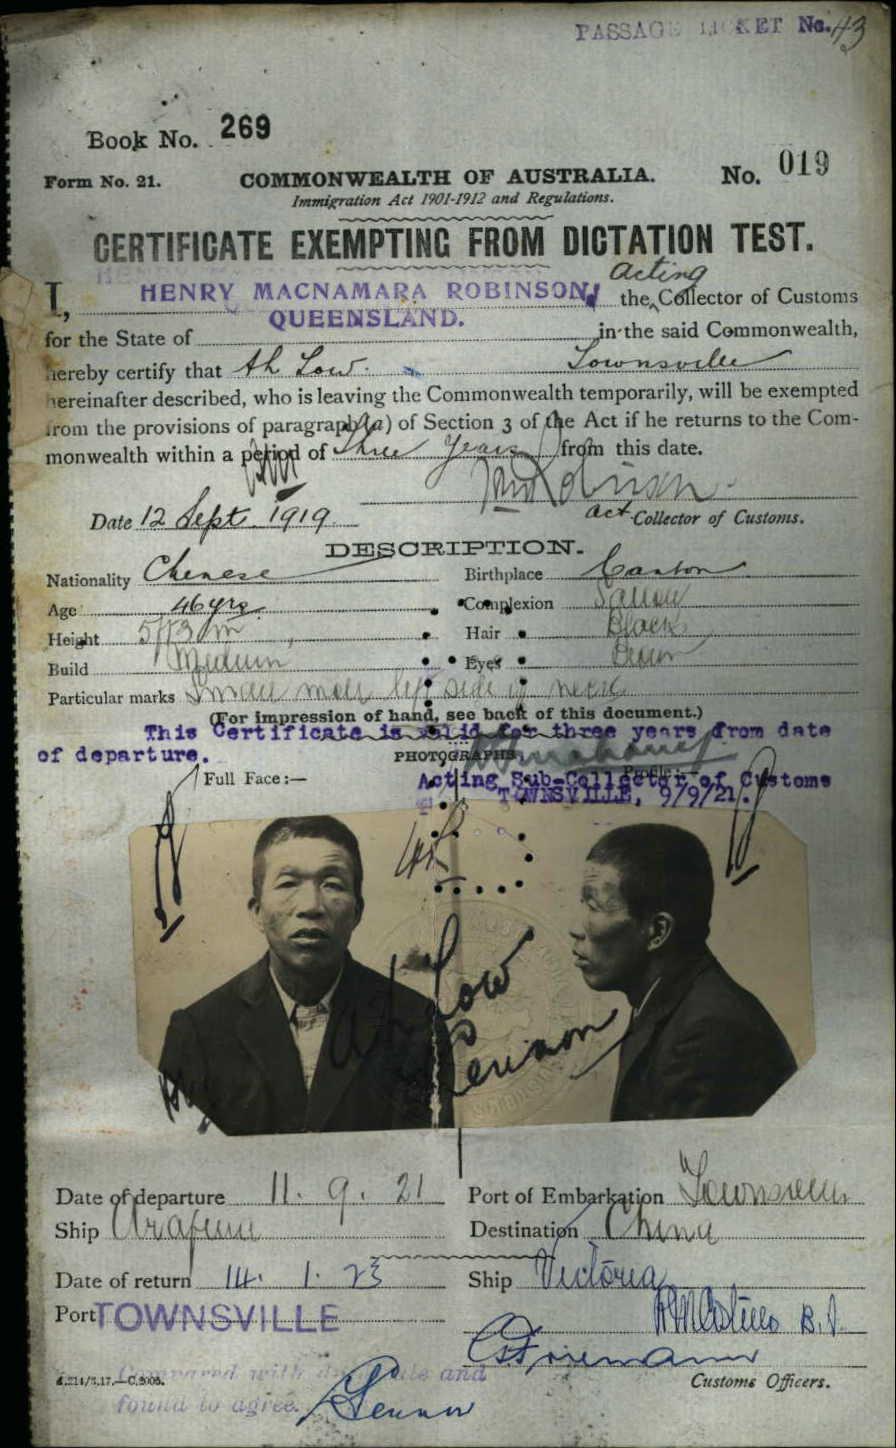 PASSAGE TICKET No. 43
Book No. 269
Form No. 21. COMMONWEALTH OF AUSTRALIA. No. 019
Immigration Act 1901-1912 and Regulations.
CERTIFICATE EXEMPTING FROM DICTATION TEST.
acting
I, HENRY MACNAMARA ROBINSON, the Collector of Customs
for the State of QUEENSLAND. in the said Commonwealth,
hereby certify that Ah Low. Townsville
hereinafter described, who is leaving the Commonwealth temporarily, will be exempted
from the provisions of paragraph (a) of Section 3 of the Act if he returns to the Com-
monwealth within a period of Three Years from this date.
HM Robinson
Date 12 Sept. 1919. Act Collector of Customs.
DESCRIPTION.
Nationality Chinese Birthplace Canton
Age 46 yrs Complexion Sallow
Height Hair Black
Build Medium Eyes Brown
Particular marks Small mole left side of neck
(For impression of hand, see back of this document.)
This Certificate is valid for three years from date
of departure.
PHOTOGRAPHS.
Full Face:— Profile:—
Acting Sub-Collector of Customs
TOWNSVILLE, 9/9/21.
Ah Low
Date of departure 11. 9. 21 Port of Embarkation Townsville
Ship Arafura Destination China
Date of return 14. 1. 23 Ship Victoria
Port TOWNSVILLE
B.I.
Customs Officers.
Compared with duplicate and
found to agree.